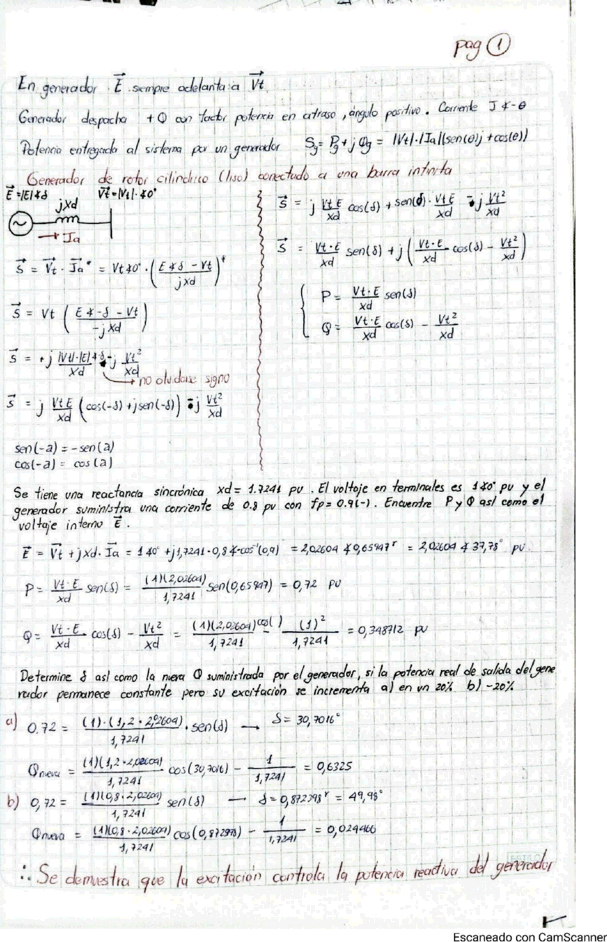 pag ①
En generador. E⃗ siempre adelanta a V⃗t
Generador despacha +Q con factor potencia en atraso, ángulo positivo. Corriente I∡-θ
Potencia entregada al sistema por un generador Sg = Pg + jQg = |Vt|·|Ia|(sen(θ)j + cos(θ))
Generador de rotor cilíndrico (liso) conectado a una barra infinita
E⃗ = |E|∡δ V⃗t = |Vt|·∡0°
jXd
→ Ia
S⃗ = V⃗t · I⃗a* = Vt∡0° · ( (E∡δ - Vt) / jxd )*
S⃗ = Vt ( (E∡-δ - Vt) / -jxd )
S⃗ = +j |Vt|·|E|∡-δ / xd - j Vt² / xd
→ no olvidar signo
S⃗ = j VtE/xd (cos(-δ) + jsen(-δ)) - j Vt²/xd
sen(-a) = -sen(a)
cos(-a) = cos(a)
S⃗ = j VtE/xd cos(δ) + sen(δ)·VtE/xd - j Vt²/xd
S⃗ = Vt·E/xd sen(δ) + j( Vt·E/xd cos(δ) - Vt²/xd )
{ P = Vt·E/xd sen(δ)
Q = Vt·E/xd cos(δ) - Vt²/xd
Se tiene una reactancia sincrónica xd = 1.7241 pu. El voltaje en terminales es 1∡0° pu y el
generador suministra una corriente de 0.8 pu con fp = 0.9(-). Encuentre P y Q así como el
voltaje interno E⃗.
E⃗ = V⃗t + jxd·I⃗a = 1∡0° + j1,7241·0,8∡-cos⁻¹(0,9) = 2,02604∡0,65947ʳ = 2,02604∡37,78° pu.
P = Vt·E/xd sen(δ) = (1)(2,02604)/1,7241 sen(0,65947) = 0,72 pu
Q = Vt·E/xd cos(δ) - Vt²/xd = (1)(2,02604)cos( )/1,7241 - (1)²/1,7241 = 0,348712 pu
Determine δ así como la nueva Q suministrada por el generador, si la potencia real de salida del gene
rador permanece constante pero su excitación se incrementa a) en un 20% b) -20%
a) 0.72 = (1)·(1,2·2,02604)/1,7241 · sen(δ) → δ = 30,7016°
Qnueva = (1)(1,2·2,02604)/1,7241 cos(30,7016) - 1/1,7241 = 0,6325
b) 0,72 = (1)(0,8·2,02604)/1,7241 sen(δ) → δ = 0,872798ʳ = 49,98°
Qnueva = (1)(0,8·2,02604)/1,7241 cos(0,872978) - 1/1,7241 = 0,024466
∴ Se demuestra que la excitación controla la potencia reactiva del generador
Escaneado con CamScanner